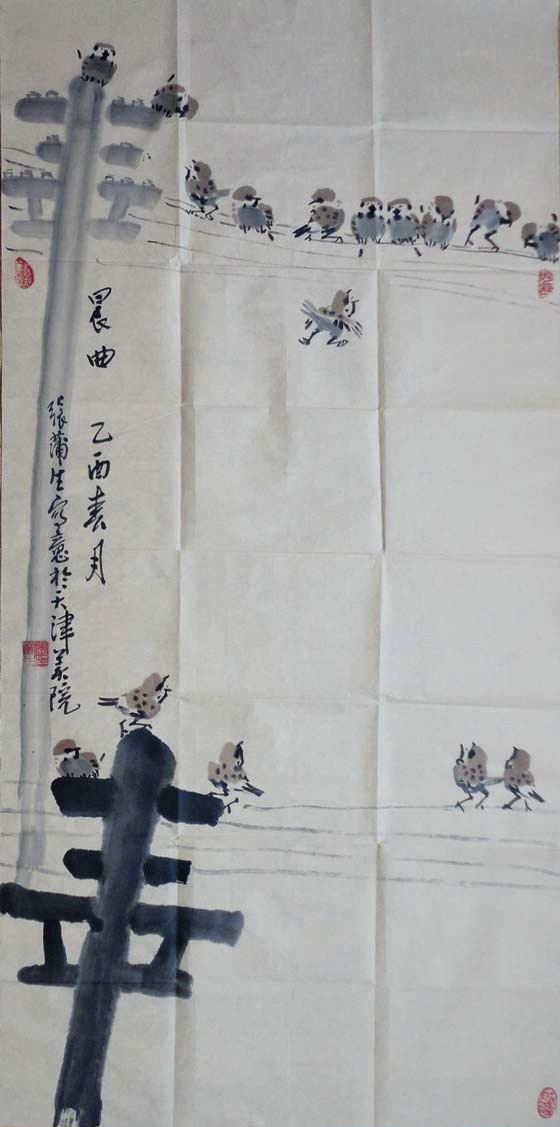 晨曲 乙酉春月
張蒲生寫意於天津美院